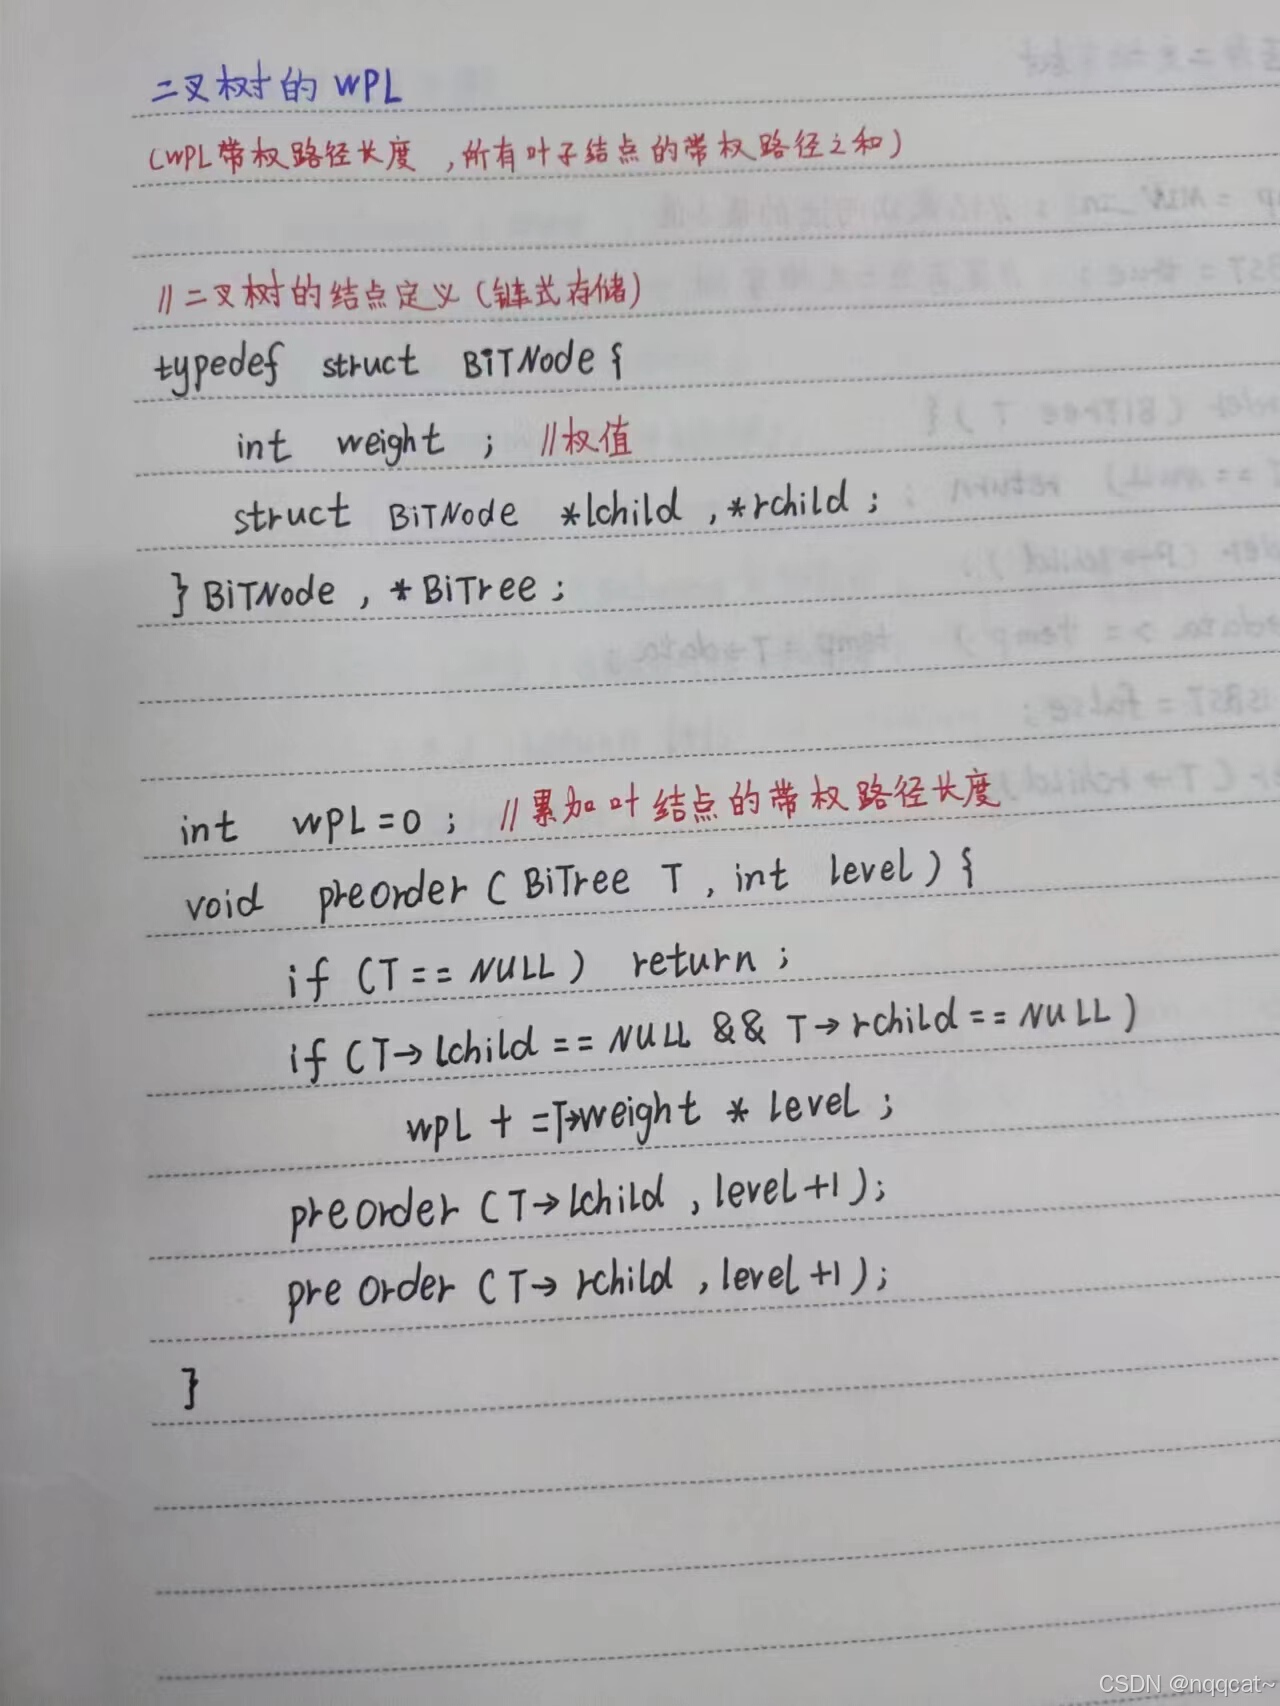 二叉树的 WPL
(WPL 带权路径长度 ,所有叶子结点的带权路径之和)
//二叉树的结点定义(链式存储)
typedef struct BiTNode{
int weight ; //权值
struct BiTNode *lchild ,*rchild ;
} BiTNode , * BiTree ;
int WPL=0 ; //累加叶结点的带权路径长度
void preorder ( BiTree T , int level ) {
if (T == NULL ) return ;
if (T→lchild == NULL && T→rchild == NULL )
WPL + =T→weight * level ;
preorder (T→lchild , level+1 );
preorder (T→rchild , level+1 );
}
CSDN @nqqcat~